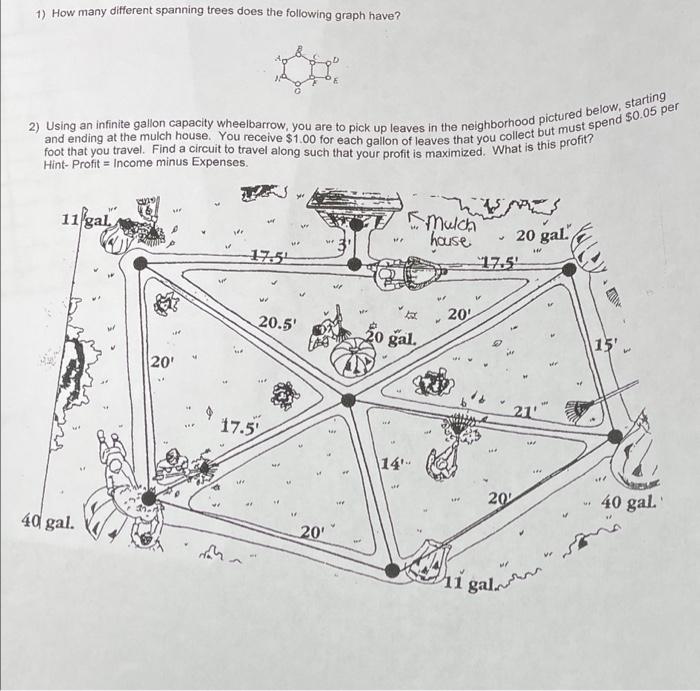 1) How many different spanning trees does the following graph have?
A B C D
H G F E
2) Using an infinite gallon capacity wheelbarrow, you are to pick up leaves in the neighborhood pictured below, starting
and ending at the mulch house. You receive $1.00 for each gallon of leaves that you collect but must spend $0.05 per
foot that you travel. Find a circuit to travel along such that your profit is maximized. What is this profit?
Hint- Profit = Income minus Expenses.
11 gal.
Mulch
house
20 gal.
3'
17.5'
17.5'
20.5'
20'
20 gal.
15'
20'
21'
17.5'
14'
20'
40 gal.
40 gal.
20'
11 gal.